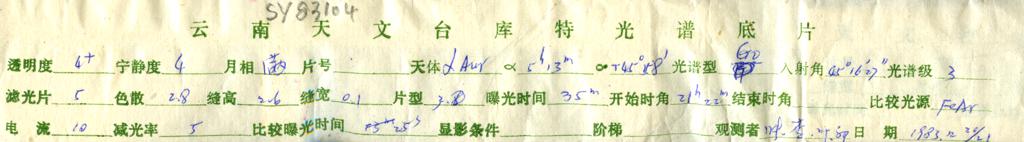 SY83104
云南天文台库特光谱底片
透明度 4+ 宁静度 4 月相 满 片号 天体 α Aur α 5h13m +45°58′ 光谱型 G8 入射角 45°16′27″ 光谱级 3
滤光片 5 色散 2.8 缝高 2.6 缝宽 0.1 片型 曝光时间 35m 开始时角 21h22m 结束时角 比较光源 FeAr
电流 10 减光率 5 比较曝光时间 显影条件 阶梯 观测者 日期 1983.12